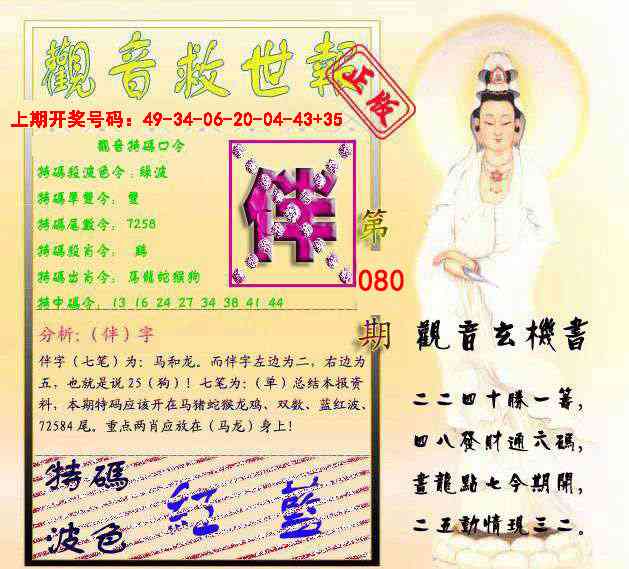 觀音救世報
正版
上期开奖号码：49-34-06-20-04-43+35
觀音特碼口令
特碼殺波色令：綠波
特碼單雙令： 雙
特碼尾數令： 7258
特碼殺肖令： 鷄
特碼出肖令： 馬龍蛇猴狗
特中碼令： 13 16 24 27 34 38 41 44
伴
第
080
期
分析:（伴）字
伴字（七笔）为：马和龙。而伴字左边为二，右边为
五，也就是说 25（狗）！七笔为：（单）总结本报资
料，本期特码应该开在马猪蛇猴龙鸡、双数、蓝红波、
72584 尾。重点两肖应放在（马龙）身上！
特碼
波色
红 蓝
觀音玄機書
二二四十勝一籌，
四八發財通六碼，
畫龍點七今期開，
二五動情現三二。